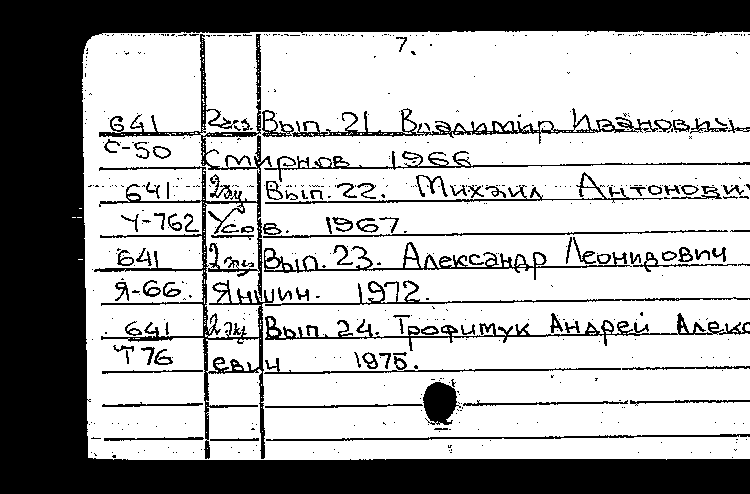 7.
641 2экз Вып. 21 Владимир Иванович
С-50 Смирнов. 1966
641 2экз Вып. 22. Михаил Антонович
У-762 Усов. 1967.
641 2экз Вып. 23. Александр Леонидович
Я-66. Яншин. 1972.
641 2экз Вып. 24. Трофимук Андрей Алекс
Т 76 евич 1975.